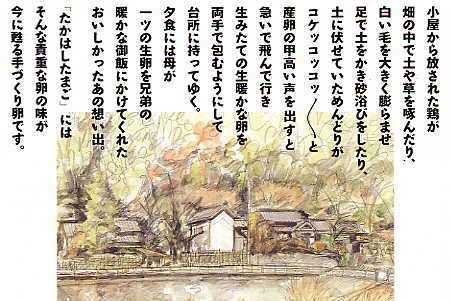 小屋から放された鶏が
畑の中で土や草を啄んだり、
白い毛を大きく膨らませ
足で土をかき砂浴びをしたり、
土に伏せていためんどりが
コケッコッコッ〳〵〳〵と
産卵の甲高い声を出すと
急いで飛んで行き
生みたての生暖かな卵を
両手で包むようにして
台所に持ってゆく。
夕食には母が
一ツの生卵を兄弟の
暖かな御飯にかけてくれた
おいしかったあの想い出。
「たかはしたまご」には
そんな貴重な卵の味が
今に甦る手づくり卵です。